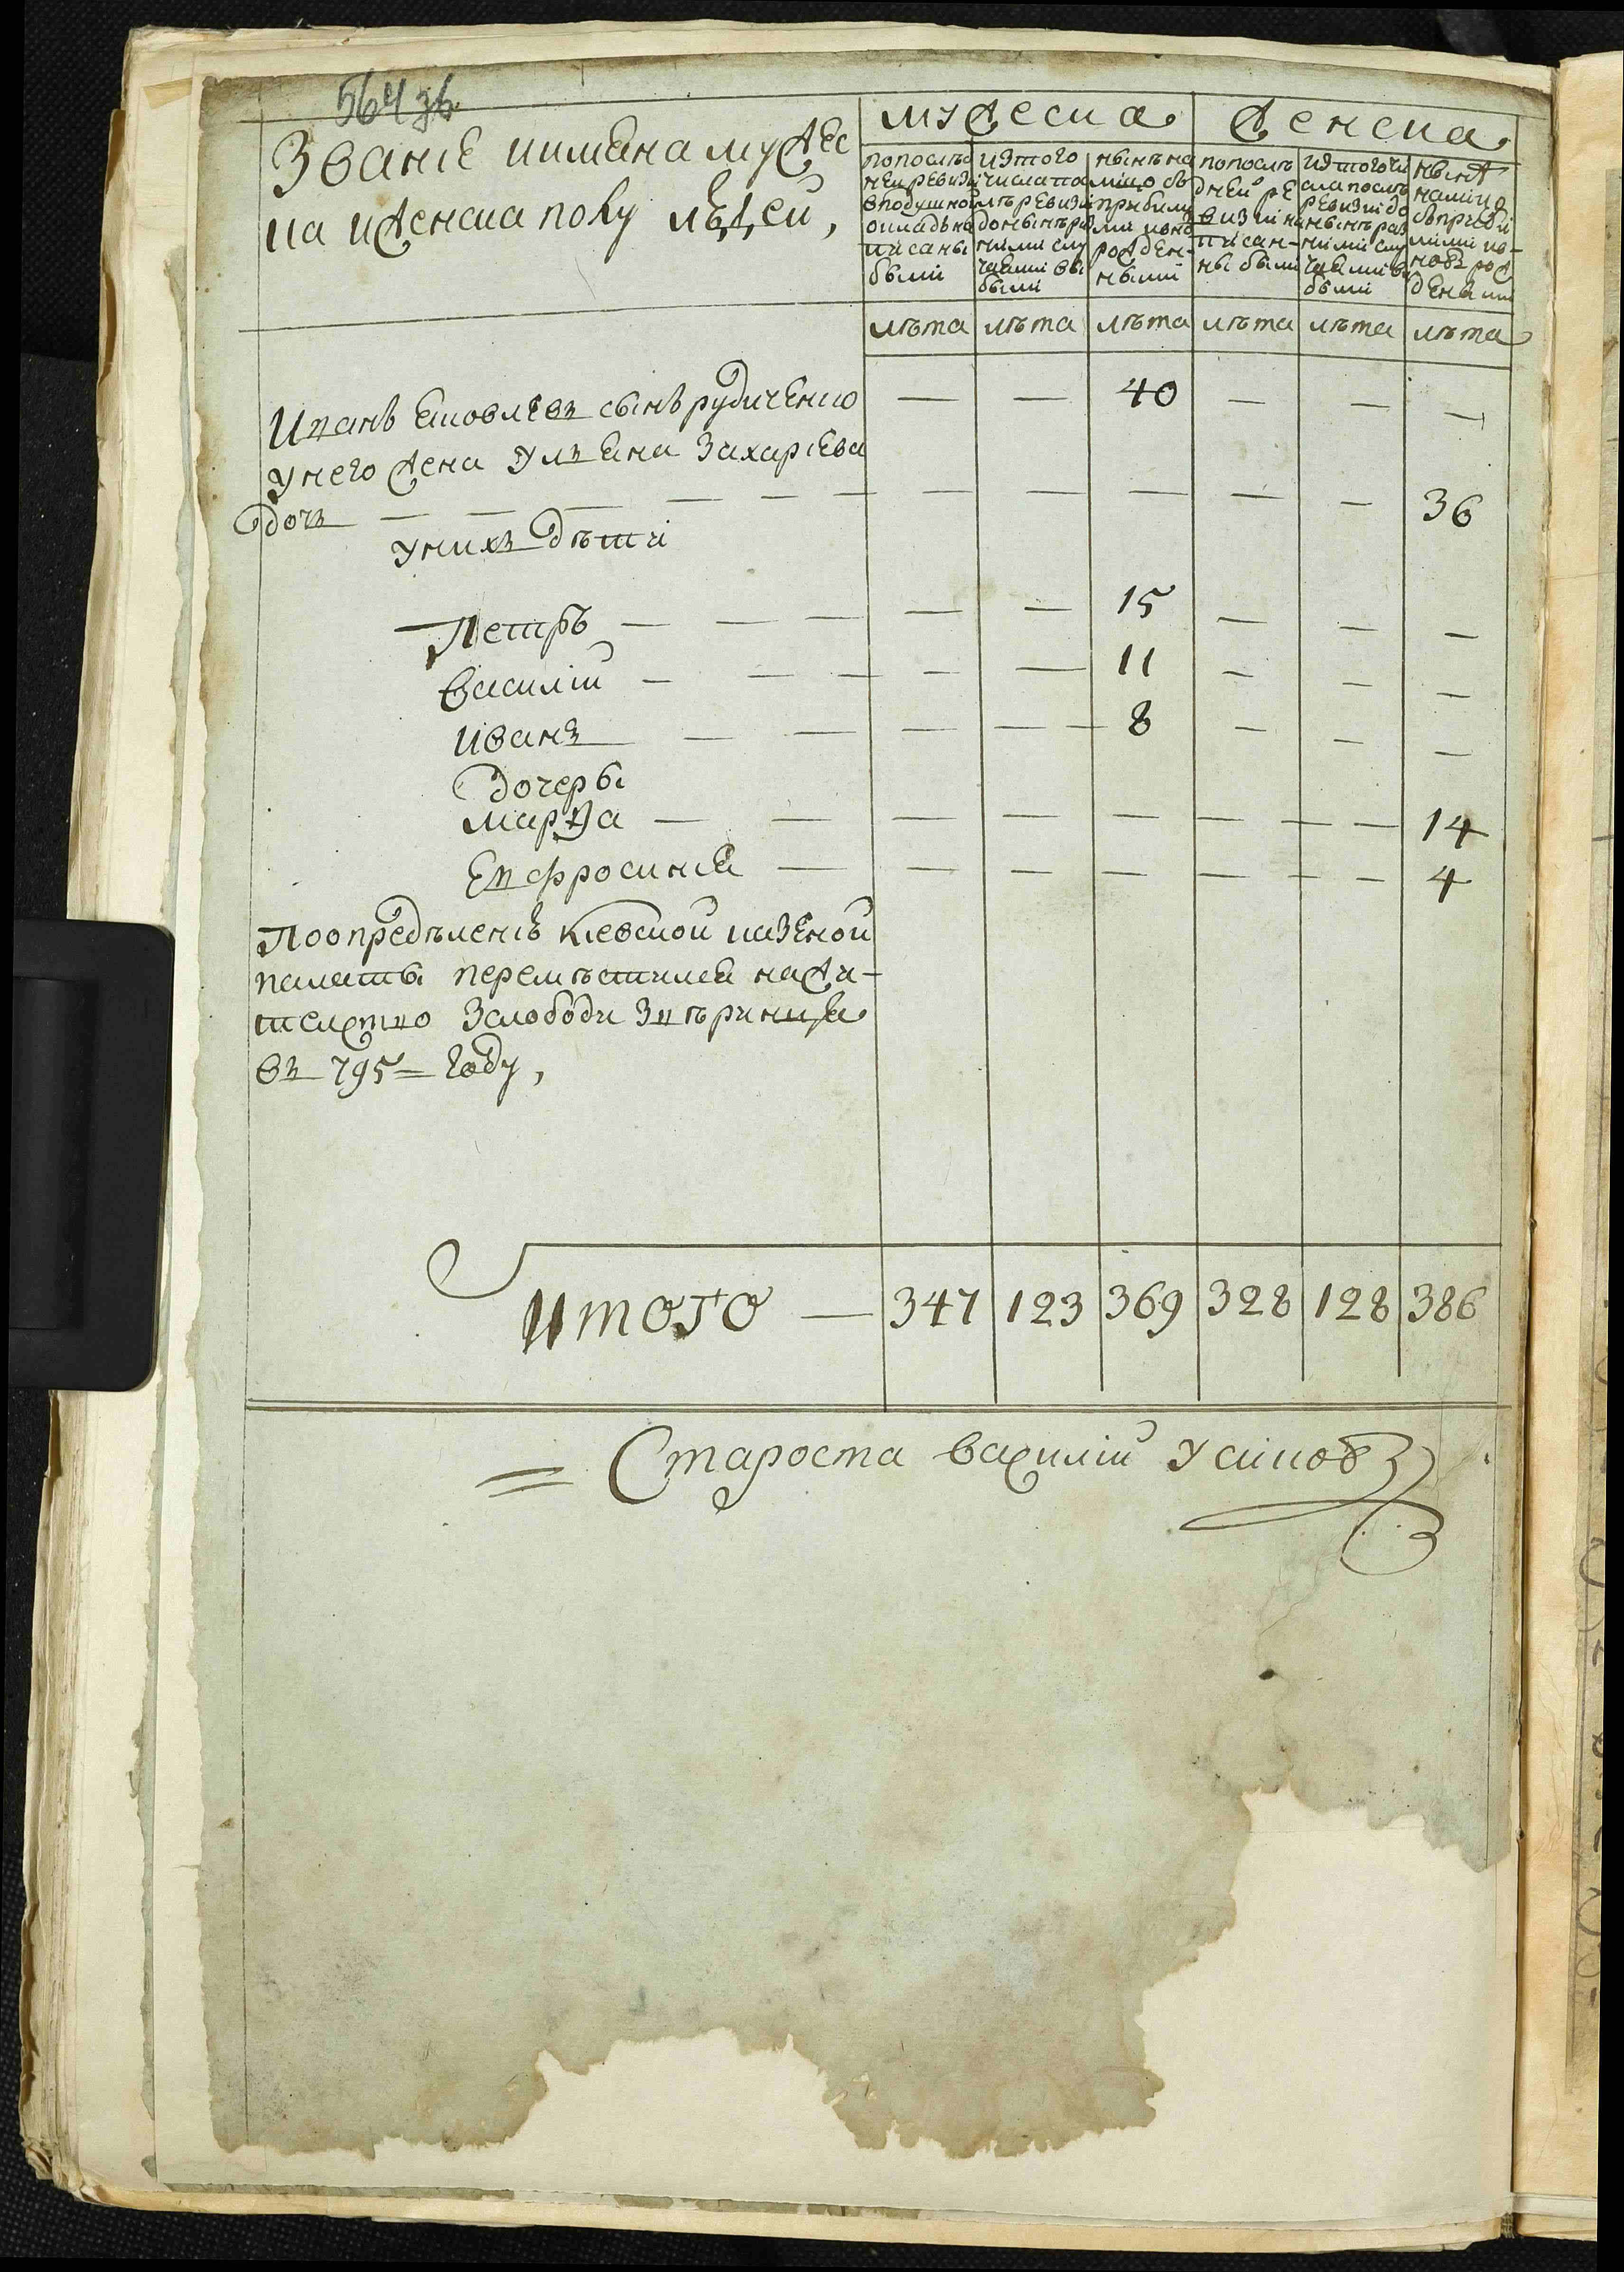 564 зв.
Званіе иимѧна мужес
ка иженска полу людей,
мужеска
женска
попослѣд ней ревизіи вподушной окладъ на писаны были
изтого числа по слѣ ревизіи до нынѣ раз ными слу чаями вы были
нынѣ на лицо съ прибылы ми иново рожден ными
попослѣ дней ре визіи на писан ны были
изтогочи сла послѣ ревизіи до нынѣ раз ними слу чаями вы были
нынѣ налицо съприбы лими но новъ рож денами
лѣта лѣта лѣта лѣта лѣта лѣта
Иванъ Ѧковлевъ сынъ рудиченко — — 40 — — —
Унего жена Улѧна Захаріева
дочъ — — — — — — — — — — — 36
Унихъ дѣти
Петръ — — — — — 15 — — —
Василій — — — — — 11 — — —
Иванъ — — — — — 8 — — —
Дочеры
Марѳа — — — — — — — — 14
Евфросинія — — — — — — — 4
Поопредѣленію кіевской казеной
палаты перемѣстился нажи-
телство
въ 795 = году,
Итого — 347 123 369 328 128 386
= Староста василій Усиковъ